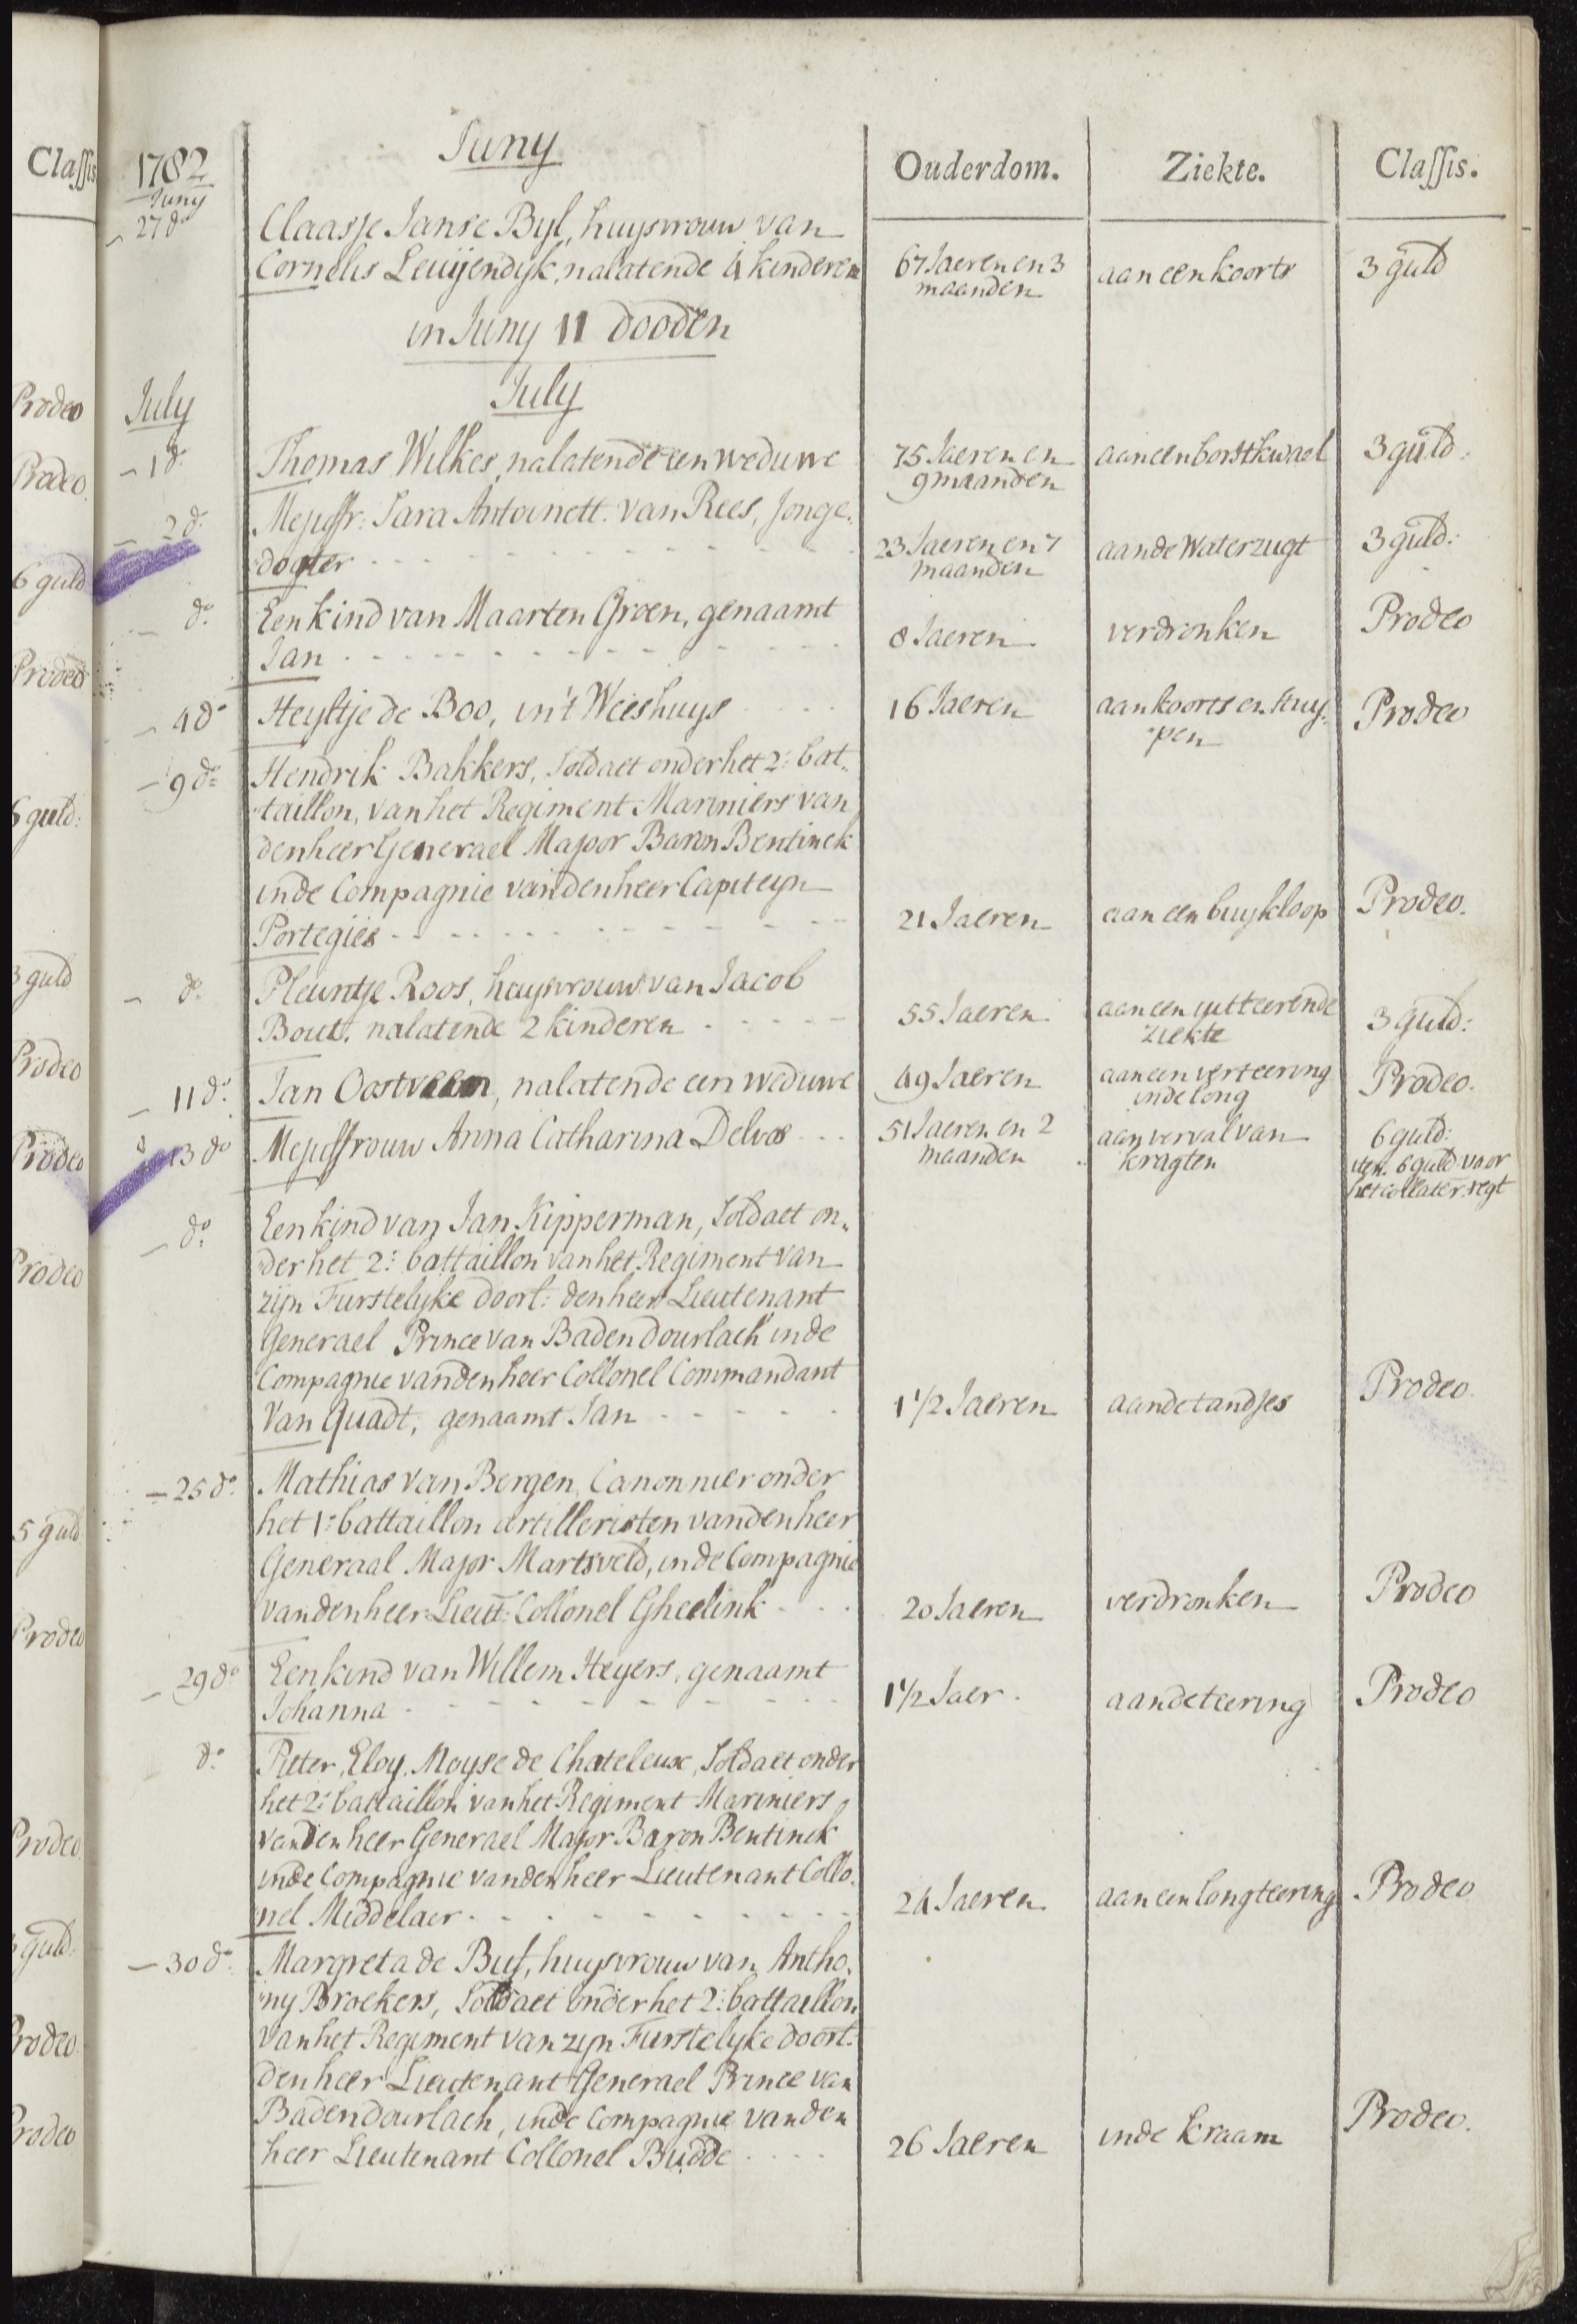 Classis
1782
Juny
Ouderdom.
Ziekte.
Classis.
Juny
27 do
Claasje Janse Byl, huysvrouw van
Cornelis Leuijendyk, nalatende 4 kinderen
67 Jaeren en 3
maanden
aan een koorts
3 guld
in Juny 11 dooden
July
July
Prodeo
1 do
Thomas Wilkes, nalatende een weduwe
75 Jaeren en
9 maanden
aan een borstkwael
3 guld:
Prodeo.
2 do
Mejuffr: Sara Antoinett. van Rees, Jonge.
dogter
23 Jaeren en 7
maanden
aan de Waterzugt
3 guld:
6 guld
do
Een kind van Maarten Groen, genaamt
Jan
8 Jaeren
verdronken
Prodeo
Prodeo
4 do
Heyltje de Boo, in 't Weeshuys
16 Jaeren
aan koorts en stuy:
pen
Prodeo
9 do
Hendrik Bakkers, Soldaet onder het 2: bat.
taillon, van het Regiment Mariniers van
den heer Generael Major Baron Bentinck
in de Compagnie van den heer Capiteyn
Portegies
21 Jaeren
aan een buykloop
Prodeo.
guld:
3 guld
do
Pleuntje Roos, huysvrouw van Jacob
Bout, nalatende 2 kinderen
55 Jaeren
aan een uitteerende
ziekte
3 guld:
Prodeo
11 do
Jan Oostveen, nalatende een weduwe
49 Jaeren
aan een verteering
in de long
Prodeo.
Prodeo
13 do
Mejuffrouw Anna Catharina Delvos
51 Jaeren en 2
maanden
aan verval van
kragten
6 guld:
item. 6 guld voor
het collater: regt
Prodeo
do
Een kind van Jan Kipperman, Soldaet on,
der het 2: battaillon van het Regiment van
zijn Furstelyke doorl: den heer Lieutenant
Generael Prince van Baden Dourlach in de
Compagnie van den heer Collonel Commandant
Van Quadt, genaamt Jan
1 1/2 Jaeren
aan de tandjes
Prodeo.
25 do
Mathias van Bergen, Canonnier onder
het 1: battaillon artilleristen van den heer
Generaal Major Martsveld, in de Compagnie
van den heer Lieut: Collonel Gheelink
20 Jaeren
verdronken
Prodeo
5 guld
Prodeo
29 do
Een kind van Willem Heyers, genaamt
Johanna
1 1/2 Jaer.
aan de teering
Prodeo
do
Pieter, Eloy, Moyse de Chateleux, Soldaet onder
het 2: battaillon van het Regiment Mariniers
van den heer Generael Major Baron Bentinck
in de Compagnie van den heer Lieutenant Collo.
nel Middelaer
24 Jaeren
aan een longteering
Prodeo
Prodeo.
guld.
30 do
Margreta de Buf, huysvrouw van Antho.
ny Broekers, Soldaet onder het 2: battaillon
van het Regiment van zijn Furstelyke doorl:
den heer Lieutenant Generael Prince van
Baden Dourlach, in de Compagnie van den
heer Lieutenant Collonel Budde
26 Jaeren
in de kraam
Prodeo.
Prodeo
Prodeo